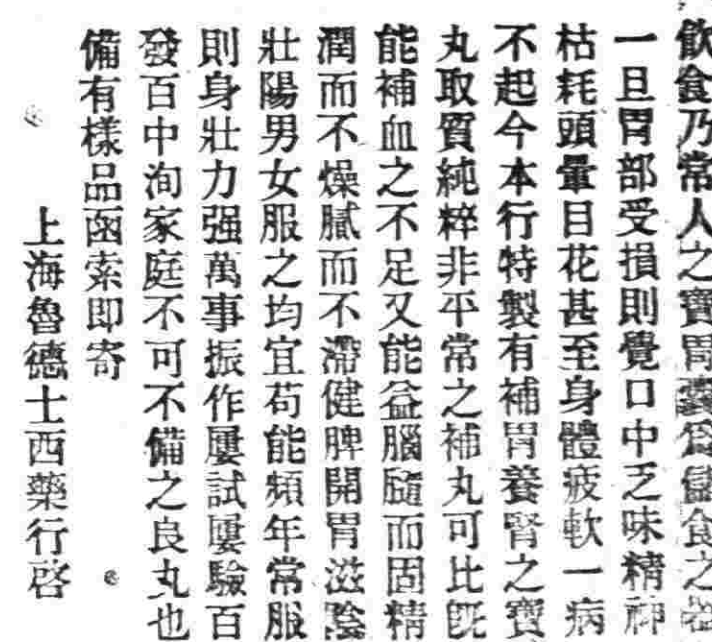 飲食乃常人之寶胃囊爲儲食之
一旦胃部受損則覺口中乏味精神
枯耗頭暈目花甚至身體疲軟一病
不起今本行特製有補胃養腎之寶
丸取質純粹非平常之補丸可比既
能補血之不足又能益腦髓而固精
潤而不燥膩而不滯健脾開胃滋陰
壯陽男女服之均宜苟能頻年常服
則身壯力强萬事振作屢試屢驗百
發百中洵家庭不可不備之良丸也
備有樣品函索即寄
上海魯德士西藥行啓